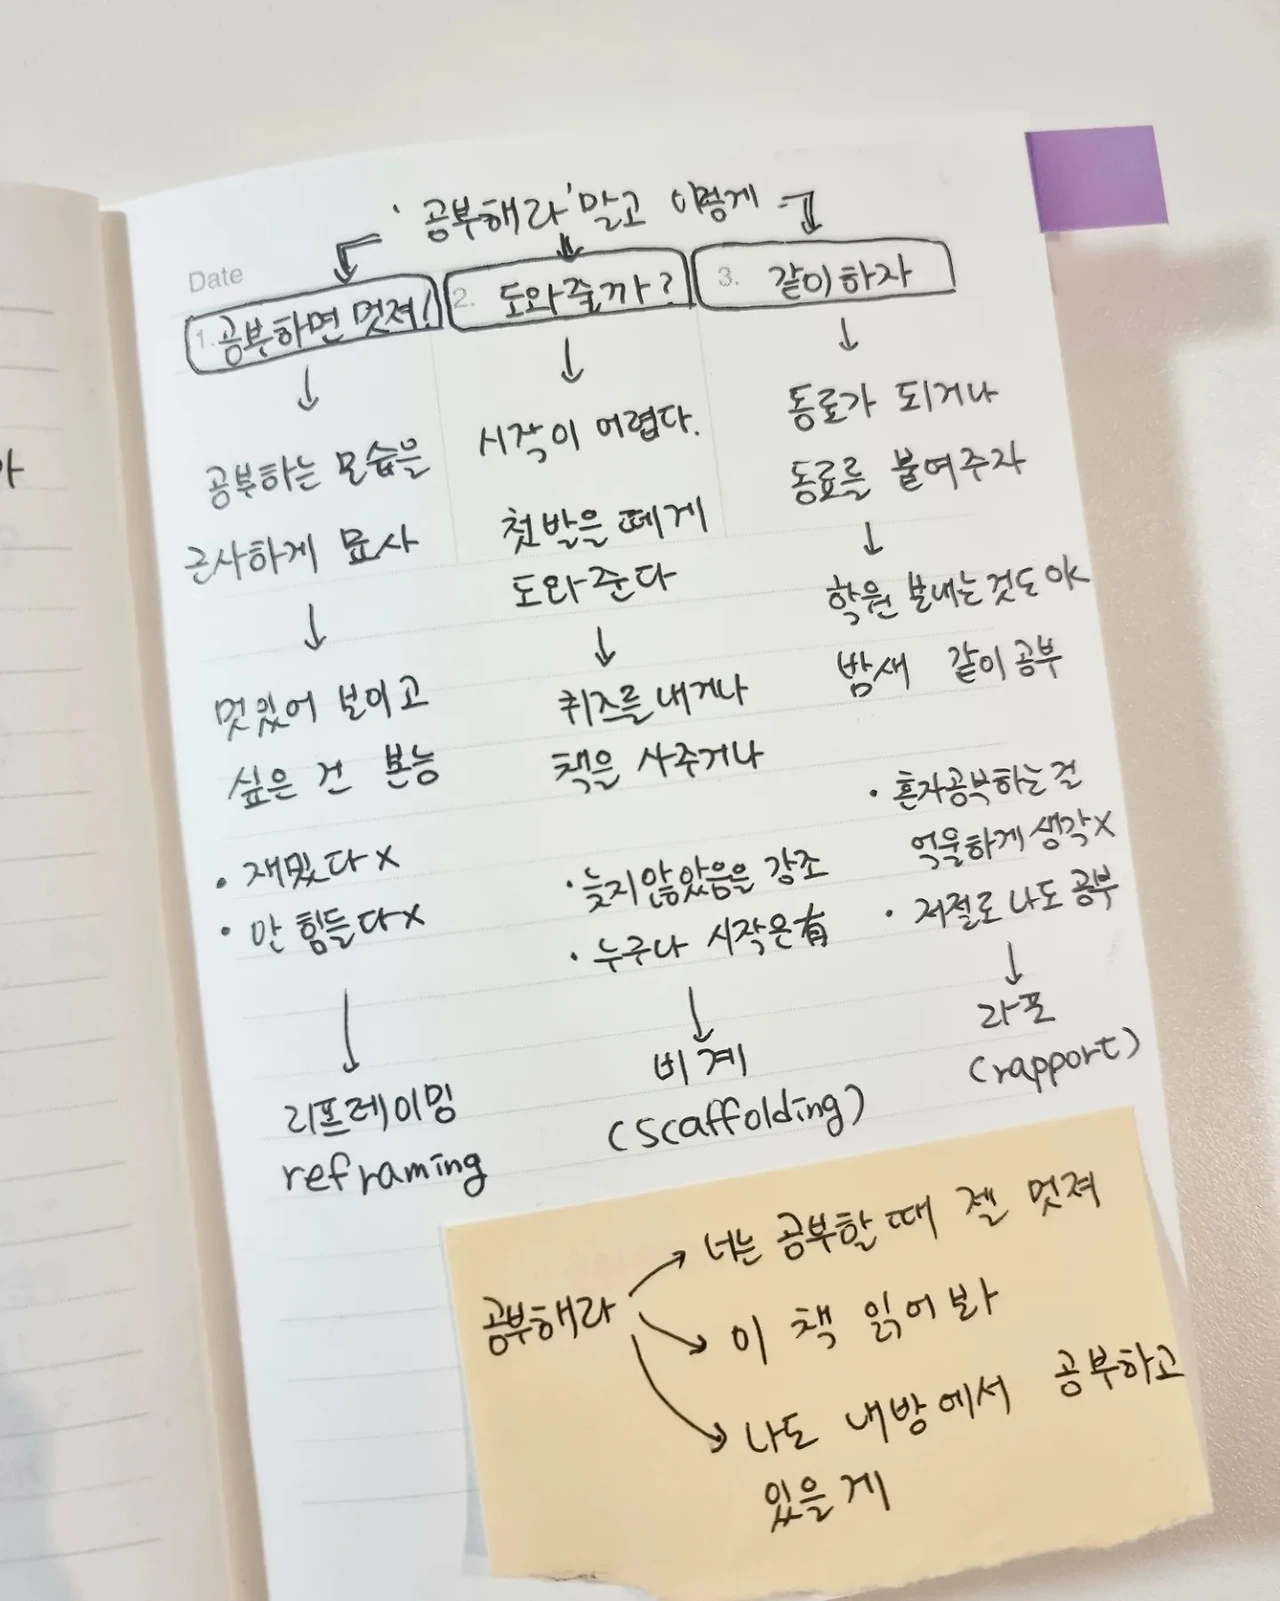 '공부해라' 말고 이렇게
Date
1. 공부하면 멋져!
공부하는 모습을
근사하게 묘사
멋있어 보이고
싶은 건 본능
• 재밌다 X
• 안 힘들다 X
리프레이밍
reframing
2. 도와줄까?
시작이 어렵다.
첫발을 떼게
도와준다
퀴즈를 내거나
책을 사주거나
• 늦지 않았음을 강조
• 누구나 시작은 有
비계
(scaffolding)
3. 같이하자
동료가 되거나
동료를 붙여주자
학원 보내는것도 OK
밤새 같이 공부
• 혼자공부하는 걸
억울하게 생각 X
• 저절로 나도 공부
라포
(rapport)
공부해라
너는 공부할 때 젤 멋져
이 책 읽어봐
나도 내방에서 공부하고
있을게